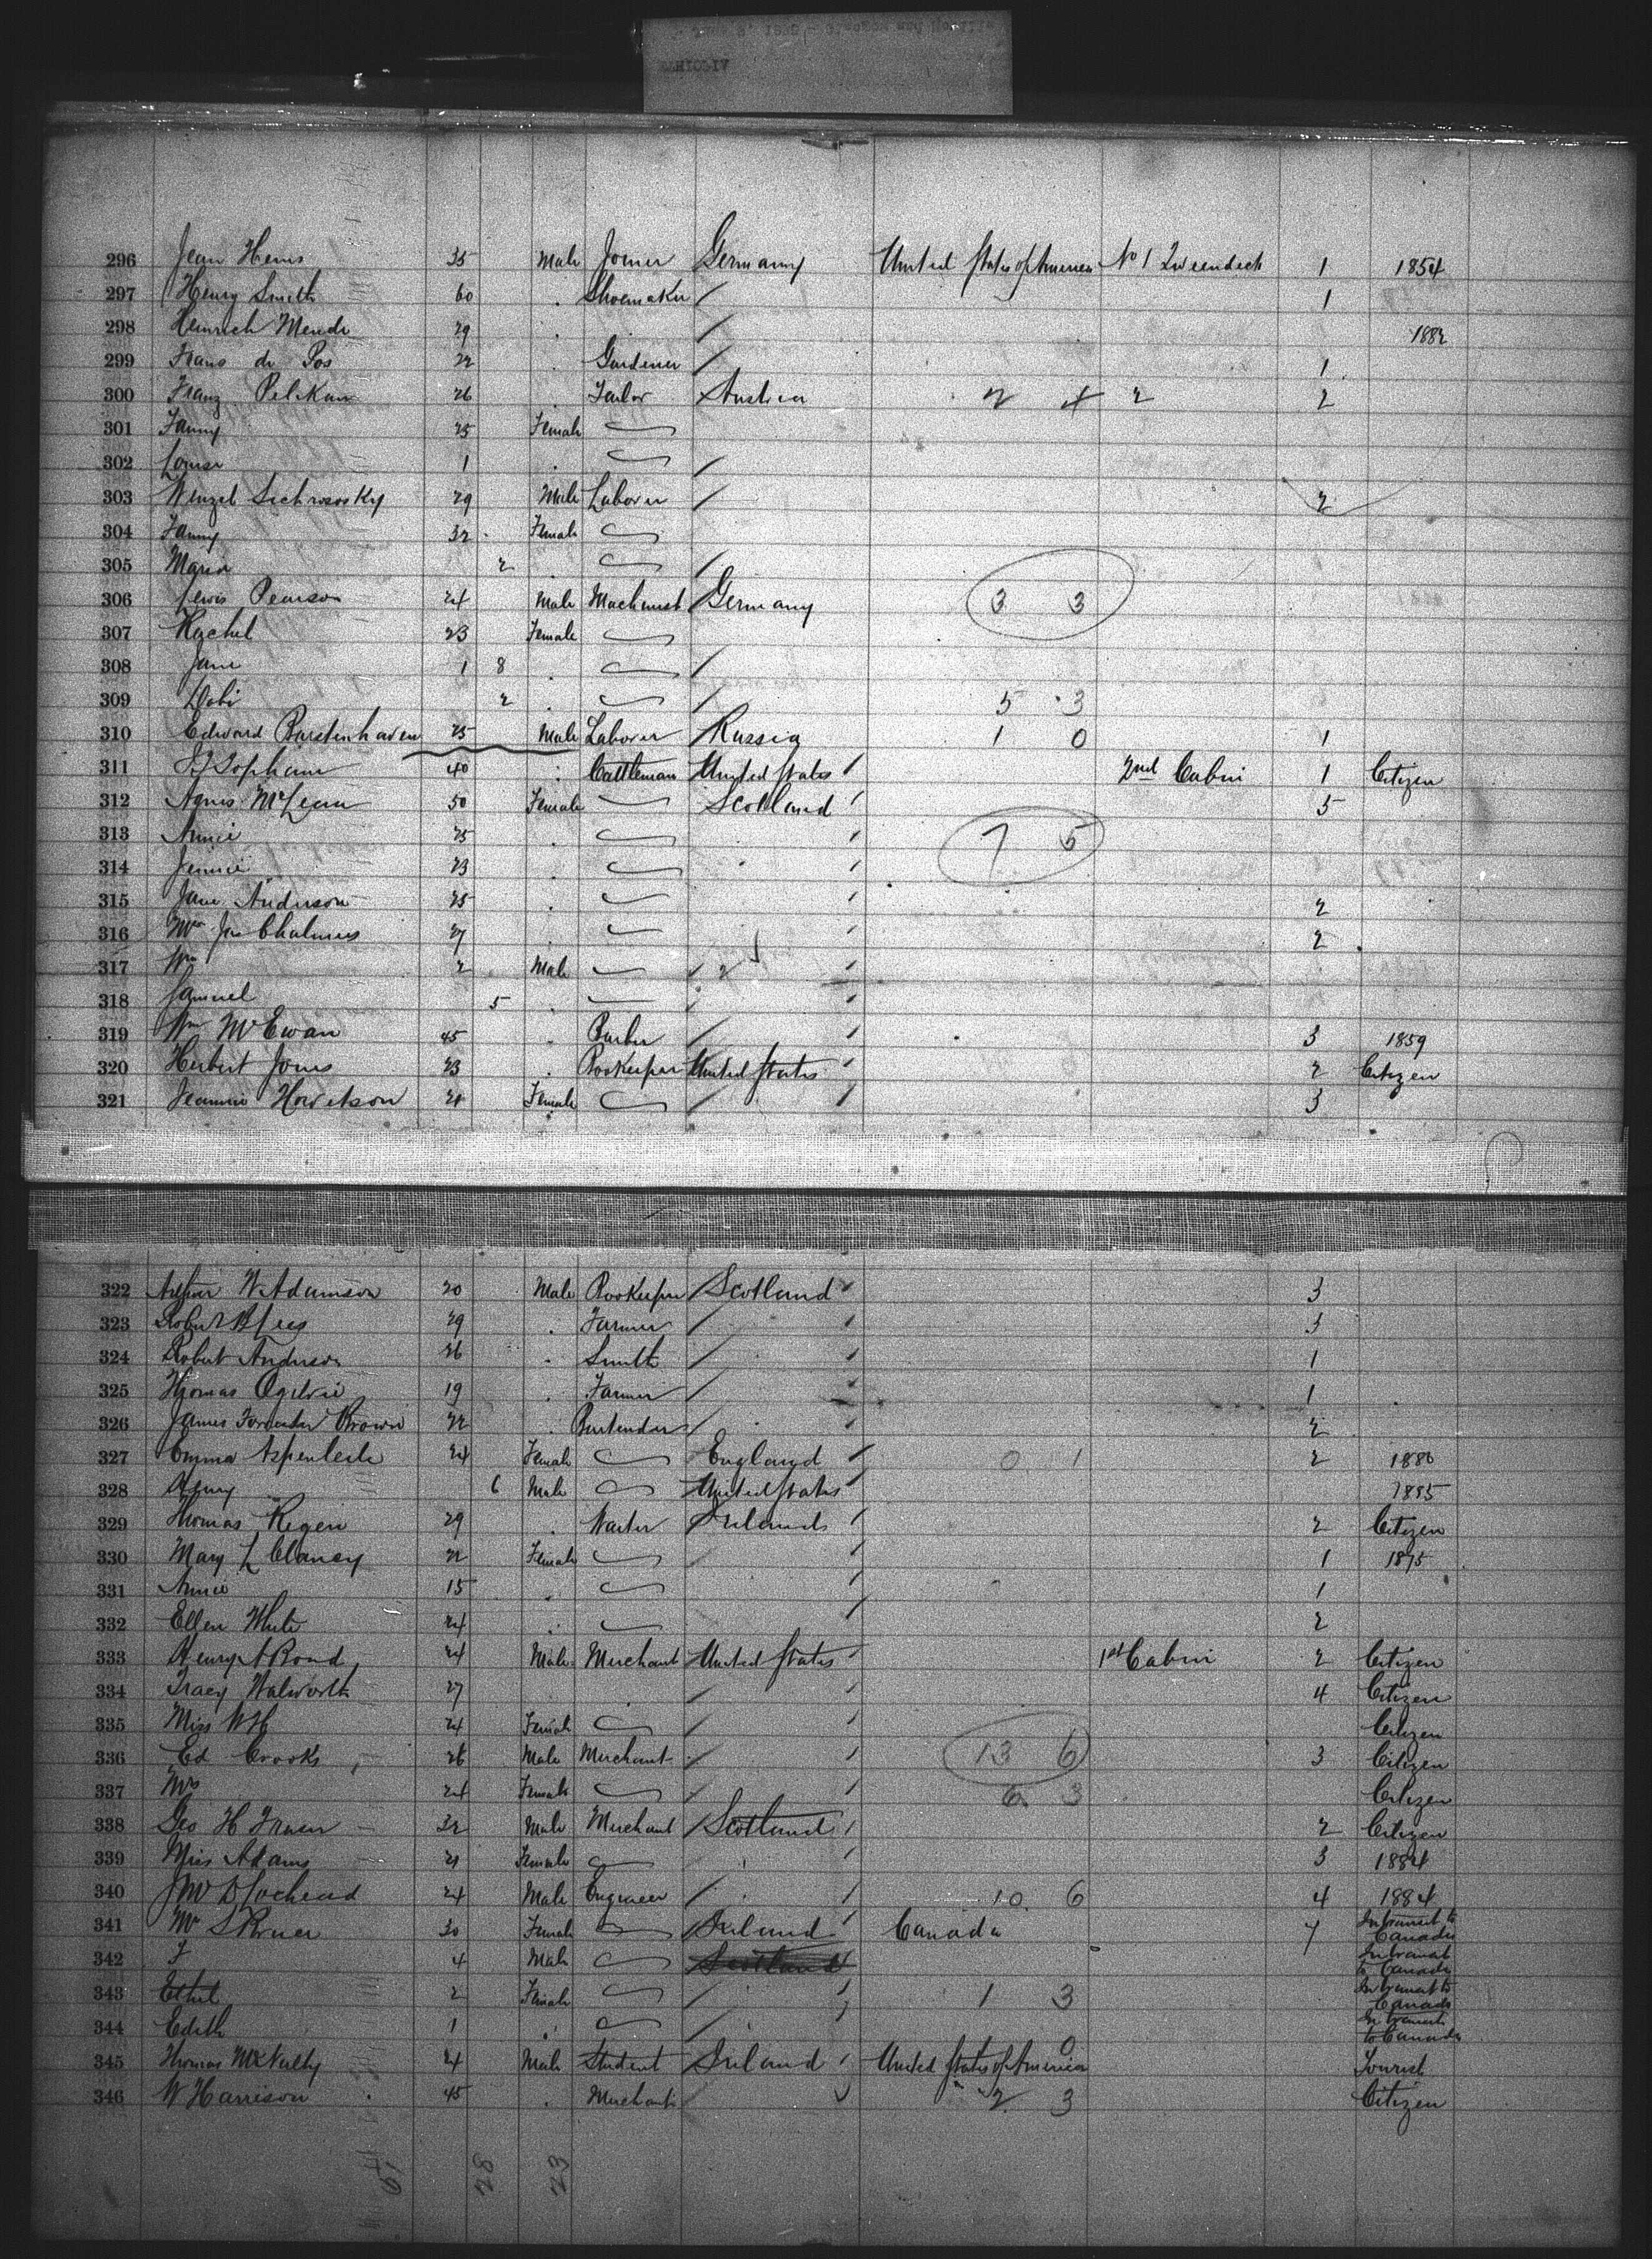 296 Jean Hems 35 Male Joiner Germany United States of America No 1 Tweendeck 1 1854
297 Henry Smith 60 Shoemaker / 1
298 Heinrich Mende 29 / 1882
299 Frans de Pos 22 Gardener / 1
300 Franz Pelikan 26 Tailor Austria 2 4 2 2
301 Fanny 25 Female
302 Louise 1 /
303 Wenzel 29 Male Laborer / 2
304 Fanny 32 Female
305 Maria 2 /
306 Lewis Pearson 24 Male Machinist Germany 3 3
307 Rachel 23 Female
308 Jane 1 8 /
309 2 / 5 3
310 Edward Borstenhaven 25 Male Laborer Russia 1 0 1
311 Topham 40 Cattleman United States 2nd Cabin 1 Citizen
312 Agnes McLean 50 Female Scotland 5
313 Annie 25 7 5
314 Jennie 23
315 Jane Anderson 25 2
316 Mrs Jas Chalmers 27 2
317 Wm 2 Male /
318 Samuel 5 /
319 Wm McEwan 45 Barber / 3 1859
320 Herbert Jones 23 Bookeeper United States 2 Citizen
321 Jeannie Howetson 21 Female / 3
322 Arthur W Adamson 20 Male Bookeeper Scotland 3
323 Robert 29 Farmer / 3
324 Robert Anderson 26 Smith / 1
325 Thomas Ogilvie 19 Farmer / 1
326 James Forrester Brown 22 Bartender / 2
327 Emma 24 Female England 0 1 2 1880
328 Henry 6 Male United States 1885
329 Thomas Regen 29 Waiter Ireland 2 Citizen
330 Mary L Clancy 22 Female / 1 1875
331 Annie 15 1
332 Ellen White 24 2
333 Henry A Bond 24 Male Merchant United States 1st Cabin 2 Citizen
334 Tracy Walworth 27 / 4 Citizen
335 Miss W H 24 Female / Citizen
336 Ed Crooks 26 Male Merchant / 13 6 3 Citizen
337 Mrs 24 Female / 6 3 Citizen
338 Geo H 32 Male Merchant Scotland 2 Citizen
339 Miss Adams 21 Female 3 1884
340 J M D Lochead 24 Male Engineer / 10 6 4 1884
341 30 Female Ireland Canada 7 In transit to Canada
342 F 4 Male Scotland In transit to Canada
343 Ethel 2 Female / 1 3 In transit to Canada
344 Edith 1 / In transit to Canada
345 Thomas McNally 24 Male Student Ireland United States of America 0 Tourist
346 W Harrison 45 Merchant / 2 3 Citizen
28 23